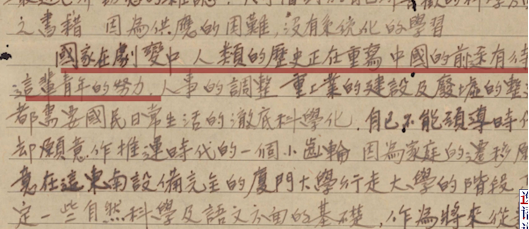 之書籍 因為供應的困難,沒有系統化的學習
國家在劇變中 人類的歷史正在重寫 中國的前途有待
這輩青年的勞力 人事的調整 重工業的建設及廢墟的整
都需要國民日常生活的澈底科學化 自己不能領導時代
却願意作推運時代的一個小齒輪 因為家庭的遷移
意在這東南設備完全的廈門大學行走大學的階段
定一些自然科學及語文方面的基礎,作為將來從